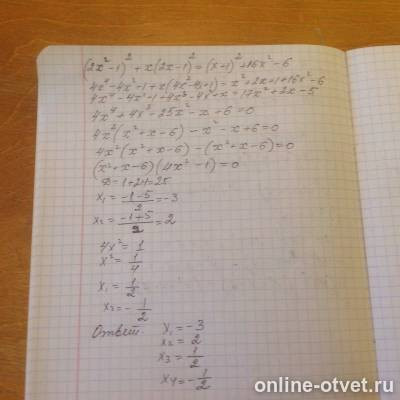 (2x²-1)² + x(2x-1)² = (x+1)² + 16x² - 6
4x⁴ - 4x² - 1 + x(4x² - 4x + 1) = x² + 2x + 1 + 16x² - 6
4x⁴ - 4x² - 1 + 4x³ - 4x² + x = 17x² + 2x - 5
4x⁴ + 4x³ - 25x² - x + 6 = 0
4x²(x² + x - 6) - x² - x + 6 = 0
4x²(x² + x - 6) - (x² + x - 6) = 0
(x² + x - 6)(4x² - 1) = 0
D = 1 + 24 = 25
x₁ = (-1-5)/2 = -3
x₂ = (-1+5)/2 = 2
4x² = 1
x² = 1/4
x₁ = 1/2
x₂ = -1/2
Ответ: x₁ = -3
x₂ = 2
x₃ = 1/2
x₄ = -1/2
online-otvet.ru